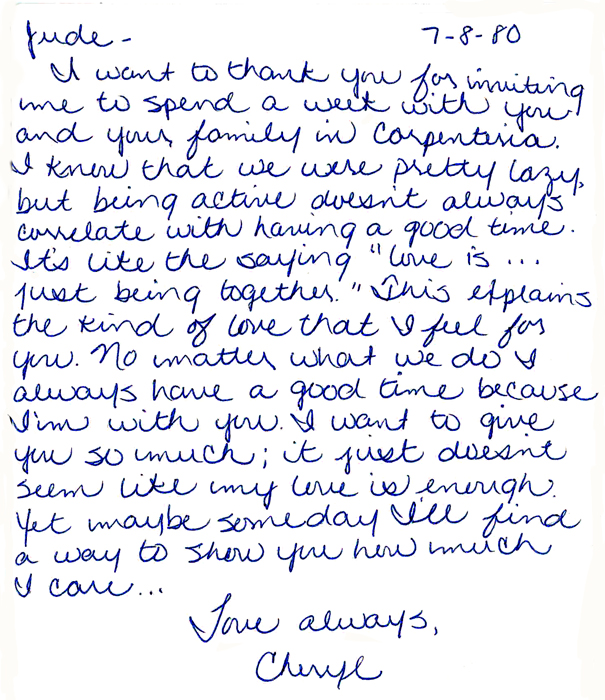 Jude - 7-8-80
I want to thank you for inviting
me to spend a week with you
and your family in Carpenteria.
I know that we were pretty lazy,
but being active doesn't always
correlate with having a good time.
It's like the saying "love is ...
just being together." This explains
the kind of love that I feel for
you. No matter what we do I
always have a good time because
I'm with you. I want to give
you so much; it just doesn't
seem like my love is enough.
Yet maybe someday I'll find
a way to show you how much
I care...
Love always,
Cheryl